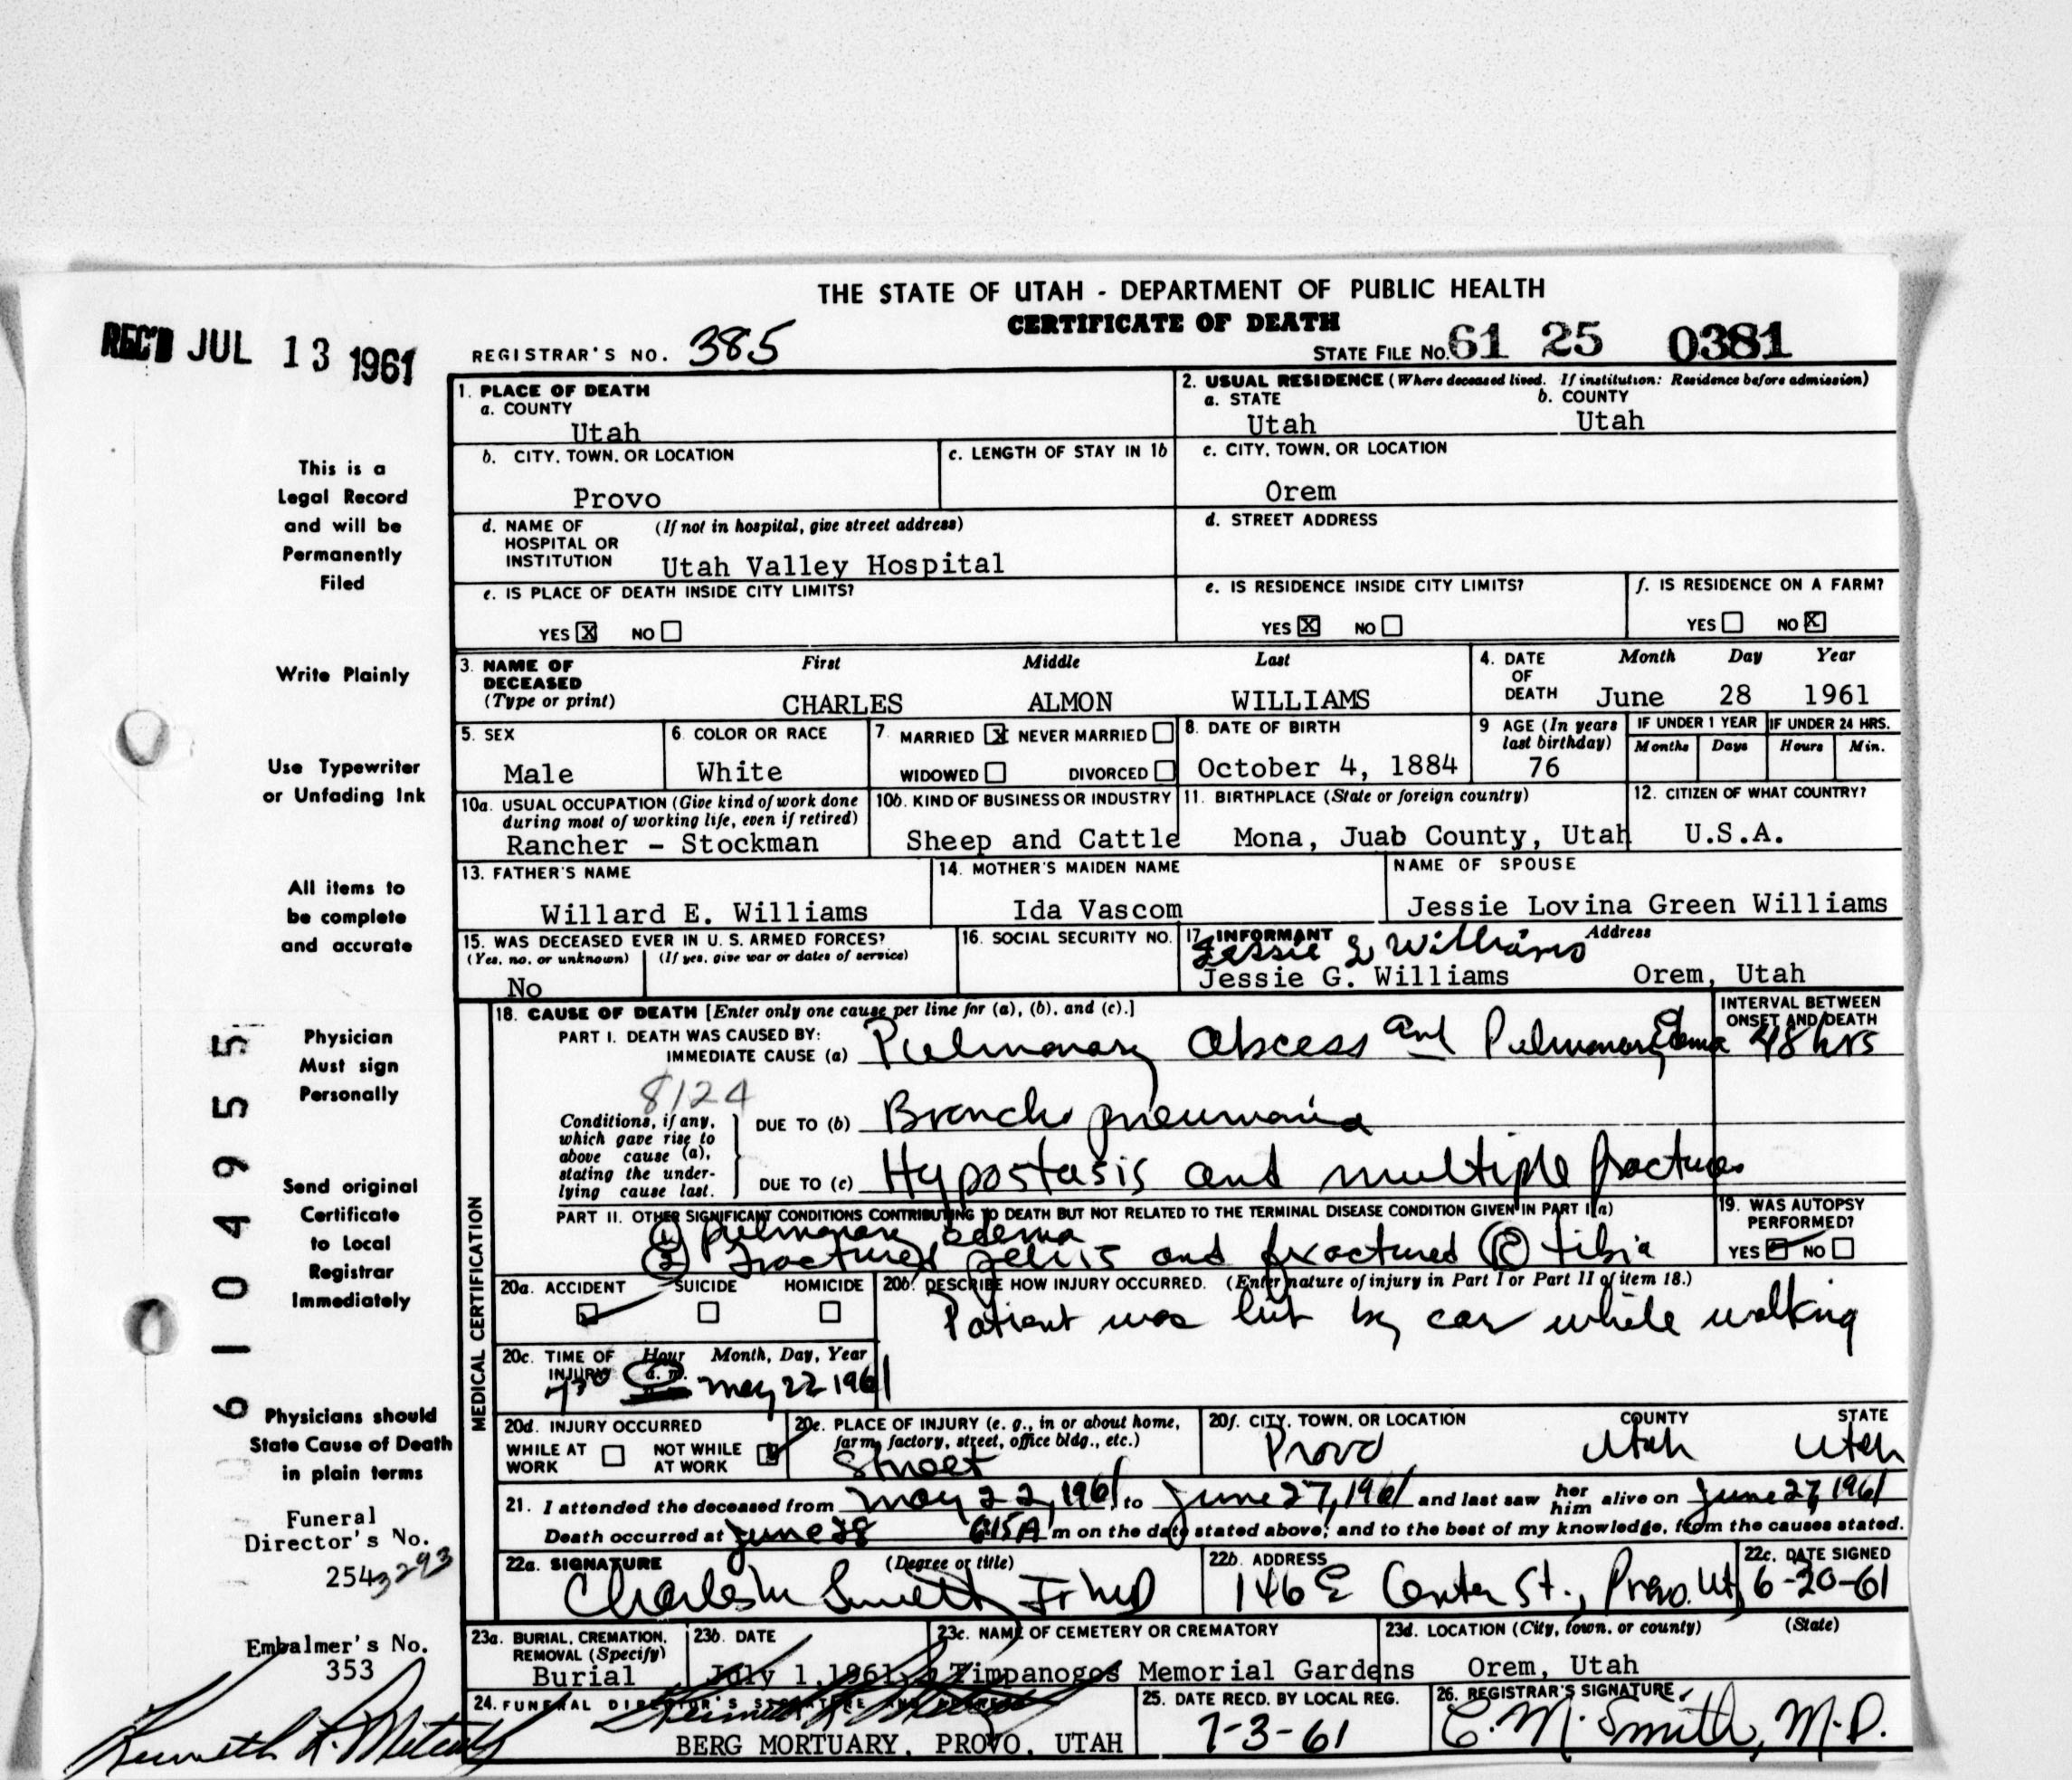 THE STATE OF UTAH - DEPARTMENT OF PUBLIC HEALTH
CERTIFICATE OF DEATH
REC'D JUL 13 1961
REGISTRAR'S NO. 385
STATE FILE NO. 61 25 0381
1. PLACE OF DEATH
a. COUNTY
Utah
2. USUAL RESIDENCE (Where deceased lived. If institution: Residence before admission)
a. STATE
Utah
b. COUNTY
Utah
b. CITY, TOWN, OR LOCATION
Provo
c. LENGTH OF STAY IN 1b
c. CITY, TOWN, OR LOCATION
Orem
d. NAME OF HOSPITAL OR INSTITUTION
(If not in hospital, give street address)
Utah Valley Hospital
d. STREET ADDRESS
e. IS PLACE OF DEATH INSIDE CITY LIMITS?
YES X NO
e. IS RESIDENCE INSIDE CITY LIMITS?
YES X NO
f. IS RESIDENCE ON A FARM?
YES NO X
3. NAME OF DECEASED (Type or print)
First Middle Last
CHARLES ALMON WILLIAMS
4. DATE OF DEATH
Month Day Year
June 28 1961
5. SEX
Male
6. COLOR OR RACE
White
7. MARRIED X NEVER MARRIED
WIDOWED DIVORCED
8. DATE OF BIRTH
October 4, 1884
9 AGE (In years last birthday)
76
IF UNDER 1 YEAR
Months Days
IF UNDER 24 HRS.
Hours Min.
10a. USUAL OCCUPATION (Give kind of work done during most of working life, even if retired)
Rancher - Stockman
10b. KIND OF BUSINESS OR INDUSTRY
Sheep and Cattle
11. BIRTHPLACE (State or foreign country)
Mona, Juab County, Utah
12. CITIZEN OF WHAT COUNTRY?
U.S.A.
13. FATHER'S NAME
Willard E. Williams
14. MOTHER'S MAIDEN NAME
Ida Vascom
NAME OF SPOUSE
Jessie Lovina Green Williams
15. WAS DECEASED EVER IN U. S. ARMED FORCES?
(Yes, no, or unknown) (If yes, give war or dates of service)
No
16. SOCIAL SECURITY NO.
17. INFORMANT Address
Jessie G Williams
Jessie G. Williams Orem, Utah
MEDICAL CERTIFICATION
18. CAUSE OF DEATH [Enter only one cause per line for (a), (b), and (c).]
INTERVAL BETWEEN ONSET AND DEATH
PART I. DEATH WAS CAUSED BY:
IMMEDIATE CAUSE (a) Pulmonary abscess and Pulmonary Edema 48 hrs
8124
Conditions, if any, which gave rise to above cause (a), stating the underlying cause last.
DUE TO (b) Broncho pneumonia
DUE TO (c) Hypostasis and multiple fractures
PART II. OTHER SIGNIFICANT CONDITIONS CONTRIBUTING TO DEATH BUT NOT RELATED TO THE TERMINAL DISEASE CONDITION GIVEN IN PART I(a)
① pulmonary edema
② Fractured pelvis and fractured Ⓡ tibia
19. WAS AUTOPSY PERFORMED?
YES NO
20a. ACCIDENT SUICIDE HOMICIDE
20b. DESCRIBE HOW INJURY OCCURRED. (Enter nature of injury in Part I or Part II of item 18.)
Patient was hit by car while walking
20c. TIME OF INJURY
Hour Month, Day, Year
7 30 a. m. May 22 1961
20d. INJURY OCCURRED
WHILE AT WORK NOT WHILE AT WORK
20e. PLACE OF INJURY (e. g., in or about home, farm, factory, street, office bldg., etc.)
Street
20f. CITY, TOWN, OR LOCATION COUNTY STATE
Provo Utah Utah
21. I attended the deceased from May 22, 1961 to June 27, 1961 and last saw her him alive on June 27, 1961
Death occurred at June 28 6:15 A m on the date stated above; and to the best of my knowledge, from the causes stated.
22a. SIGNATURE (Degree or title)
22b. ADDRESS
146 E Center St., Provo. Ut
22c. DATE SIGNED
6-20-61
23a. BURIAL, CREMATION, REMOVAL (Specify)
Burial
23b. DATE
July 1, 1961
23c. NAME OF CEMETERY OR CREMATORY
Timpanogos Memorial Gardens
23d. LOCATION (City, town, or county) (State)
Orem, Utah
24. FUNERAL DIRECTOR'S SIGNATURE AND ADDRESS
BERG MORTUARY, PROVO, UTAH
25. DATE RECD. BY LOCAL REG.
7-3-61
26. REGISTRAR'S SIGNATURE
C. M. Smith, M.D.
This is a
Legal Record
and will be
Permanently
Filed
Write Plainly
Use Typewriter
or Unfading Ink
All items to
be complete
and accurate
Physician
Must sign
Personally
Send original
Certificate
to Local
Registrar
Immediately
Physicians should
State Cause of Death
in plain terms
Funeral
Director's No.
254 3293
Embalmer's No.
353
Kenneth L. Metcalf
61 04955